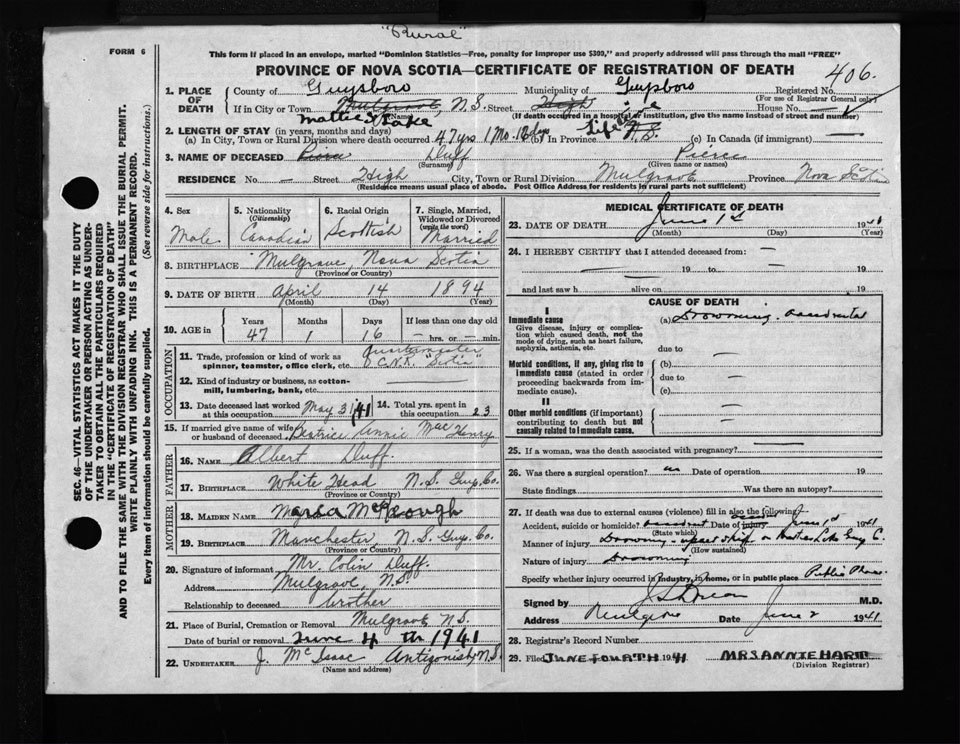 "Rural"
FORM 6
This form if placed in an envelope, marked "Dominion Statistics—Free, penalty for improper use $300," and properly addressed will pass through the mail "FREE"
PROVINCE OF NOVA SCOTIA—CERTIFICATE OF REGISTRATION OF DEATH
406.
1. PLACE OF DEATH
County of Guysboro Municipality of Guysboro Registered No.
(For use of Registrar General only)
If in City or Town Mulgrave, N.S. Street High House No. —
(Name) (If death occurred in a hospital or institution, give the name instead of street and number)
Mattie Lake
2. LENGTH OF STAY (in years, months and days)
(a) In City, Town or Rural Division where death occurred 47 yrs 1 Mo. 16 dys (b) In Province Life N.S. (c) In Canada (if immigrant) —
3. NAME OF DECEASED Duff Pierce
(Surname) (Given name or names)
RESIDENCE No. — Street High City, Town or Rural Division Mulgrave Province Nova Scotia
(Residence means usual place of abode. Post Office Address for residents in rural parts not sufficient)
4. Sex
Male
5. Nationality (Citizenship)
Canadian
6. Racial Origin
Scottish
7. Single, Married, Widowed or Divorced (write the word)
Married
8. BIRTHPLACE Mulgrave, Nova Scotia
(Province or Country)
9. DATE OF BIRTH April 14 1894
(Month) (Day) (Year)
10. AGE in Years Months Days If less than one day old
47 1 16 hrs. or min.
OCCUPATION
11. Trade, profession or kind of work as spinner, teamster, office clerk, etc. Quartermaster C.N.R. "Scotia"
12. Kind of industry or business, as cotton-mill, lumbering, bank, etc.
13. Date deceased last worked at this occupation May 31/41
14. Total yrs. spent in this occupation 23
15. If married give name of wife or husband of deceased Beatrice Annie MacHenry
FATHER
16. NAME Albert Duff.
17. BIRTHPLACE White Head N.S. Guy. Co.
(Province or Country)
MOTHER
18. MAIDEN NAME McKeough
19. BIRTHPLACE Manchester, N.S. Guy. Co.
(Province or Country)
20. Signature of informant Mr. Colin Duff.
Address Mulgrave, N.S.
Relationship to deceased brother
21. Place of Burial, Cremation or Removal Mulgrave N.S.
Date of burial or removal June 4th 1941
22. UNDERTAKER J. McIsaac Antigonish, N.S.
(Name and address)
MEDICAL CERTIFICATE OF DEATH
23. DATE OF DEATH June 1st 1941
(Month) (Day) (Year)
24. I HEREBY CERTIFY that I attended deceased from:
— 19 to — 19
and last saw h alive on 19
CAUSE OF DEATH
I
Immediate cause
Give disease, injury or complication which caused death, not the mode of dying, such as heart failure, asphyxia, asthenia, etc.
(a) Drowning. accidental
due to —
Morbid conditions, if any, giving rise to immediate cause (stated in order proceeding backwards from immediate cause).
(b)
due to —
(c)
II
Other morbid conditions (if important) contributing to death but not causally related to immediate cause.
25. If a woman, was the death associated with pregnancy?
26. Was there a surgical operation? no Date of operation 19
State findings Was there an autopsy?
27. If death was due to external causes (violence) fill in also the following:
Accident, suicide or homicide? accident Date of injury June 1st 1941
(State which)
Manner of injury Drowning - upset skiff on Matties Lake Guy C.
(How sustained)
Nature of injury Drowning
Specify whether injury occurred in industry, in home, or in public place Public Place
Signed by M.D.
Address Mulgrave Date June 2 1941
28. Registrar's Record Number
29. Filed JUNE FOURTH 1941 MRS ANNIE HART
(Division Registrar)
SEC. 46—VITAL STATISTICS ACT MAKES IT THE DUTY OF THE UNDERTAKER OR PERSON ACTING AS UNDERTAKER TO OBTAIN ALL THE PARTICULARS REQUIRED IN THE "CERTIFICATE OF REGISTRATION OF DEATH" AND TO FILE THE SAME WITH THE DIVISION REGISTRAR WHO SHALL ISSUE THE BURIAL PERMIT.
WRITE PLAINLY WITH UNFADING INK. THIS IS A PERMANENT RECORD.
Every item of information should be carefully supplied. (See reverse side for instructions.)